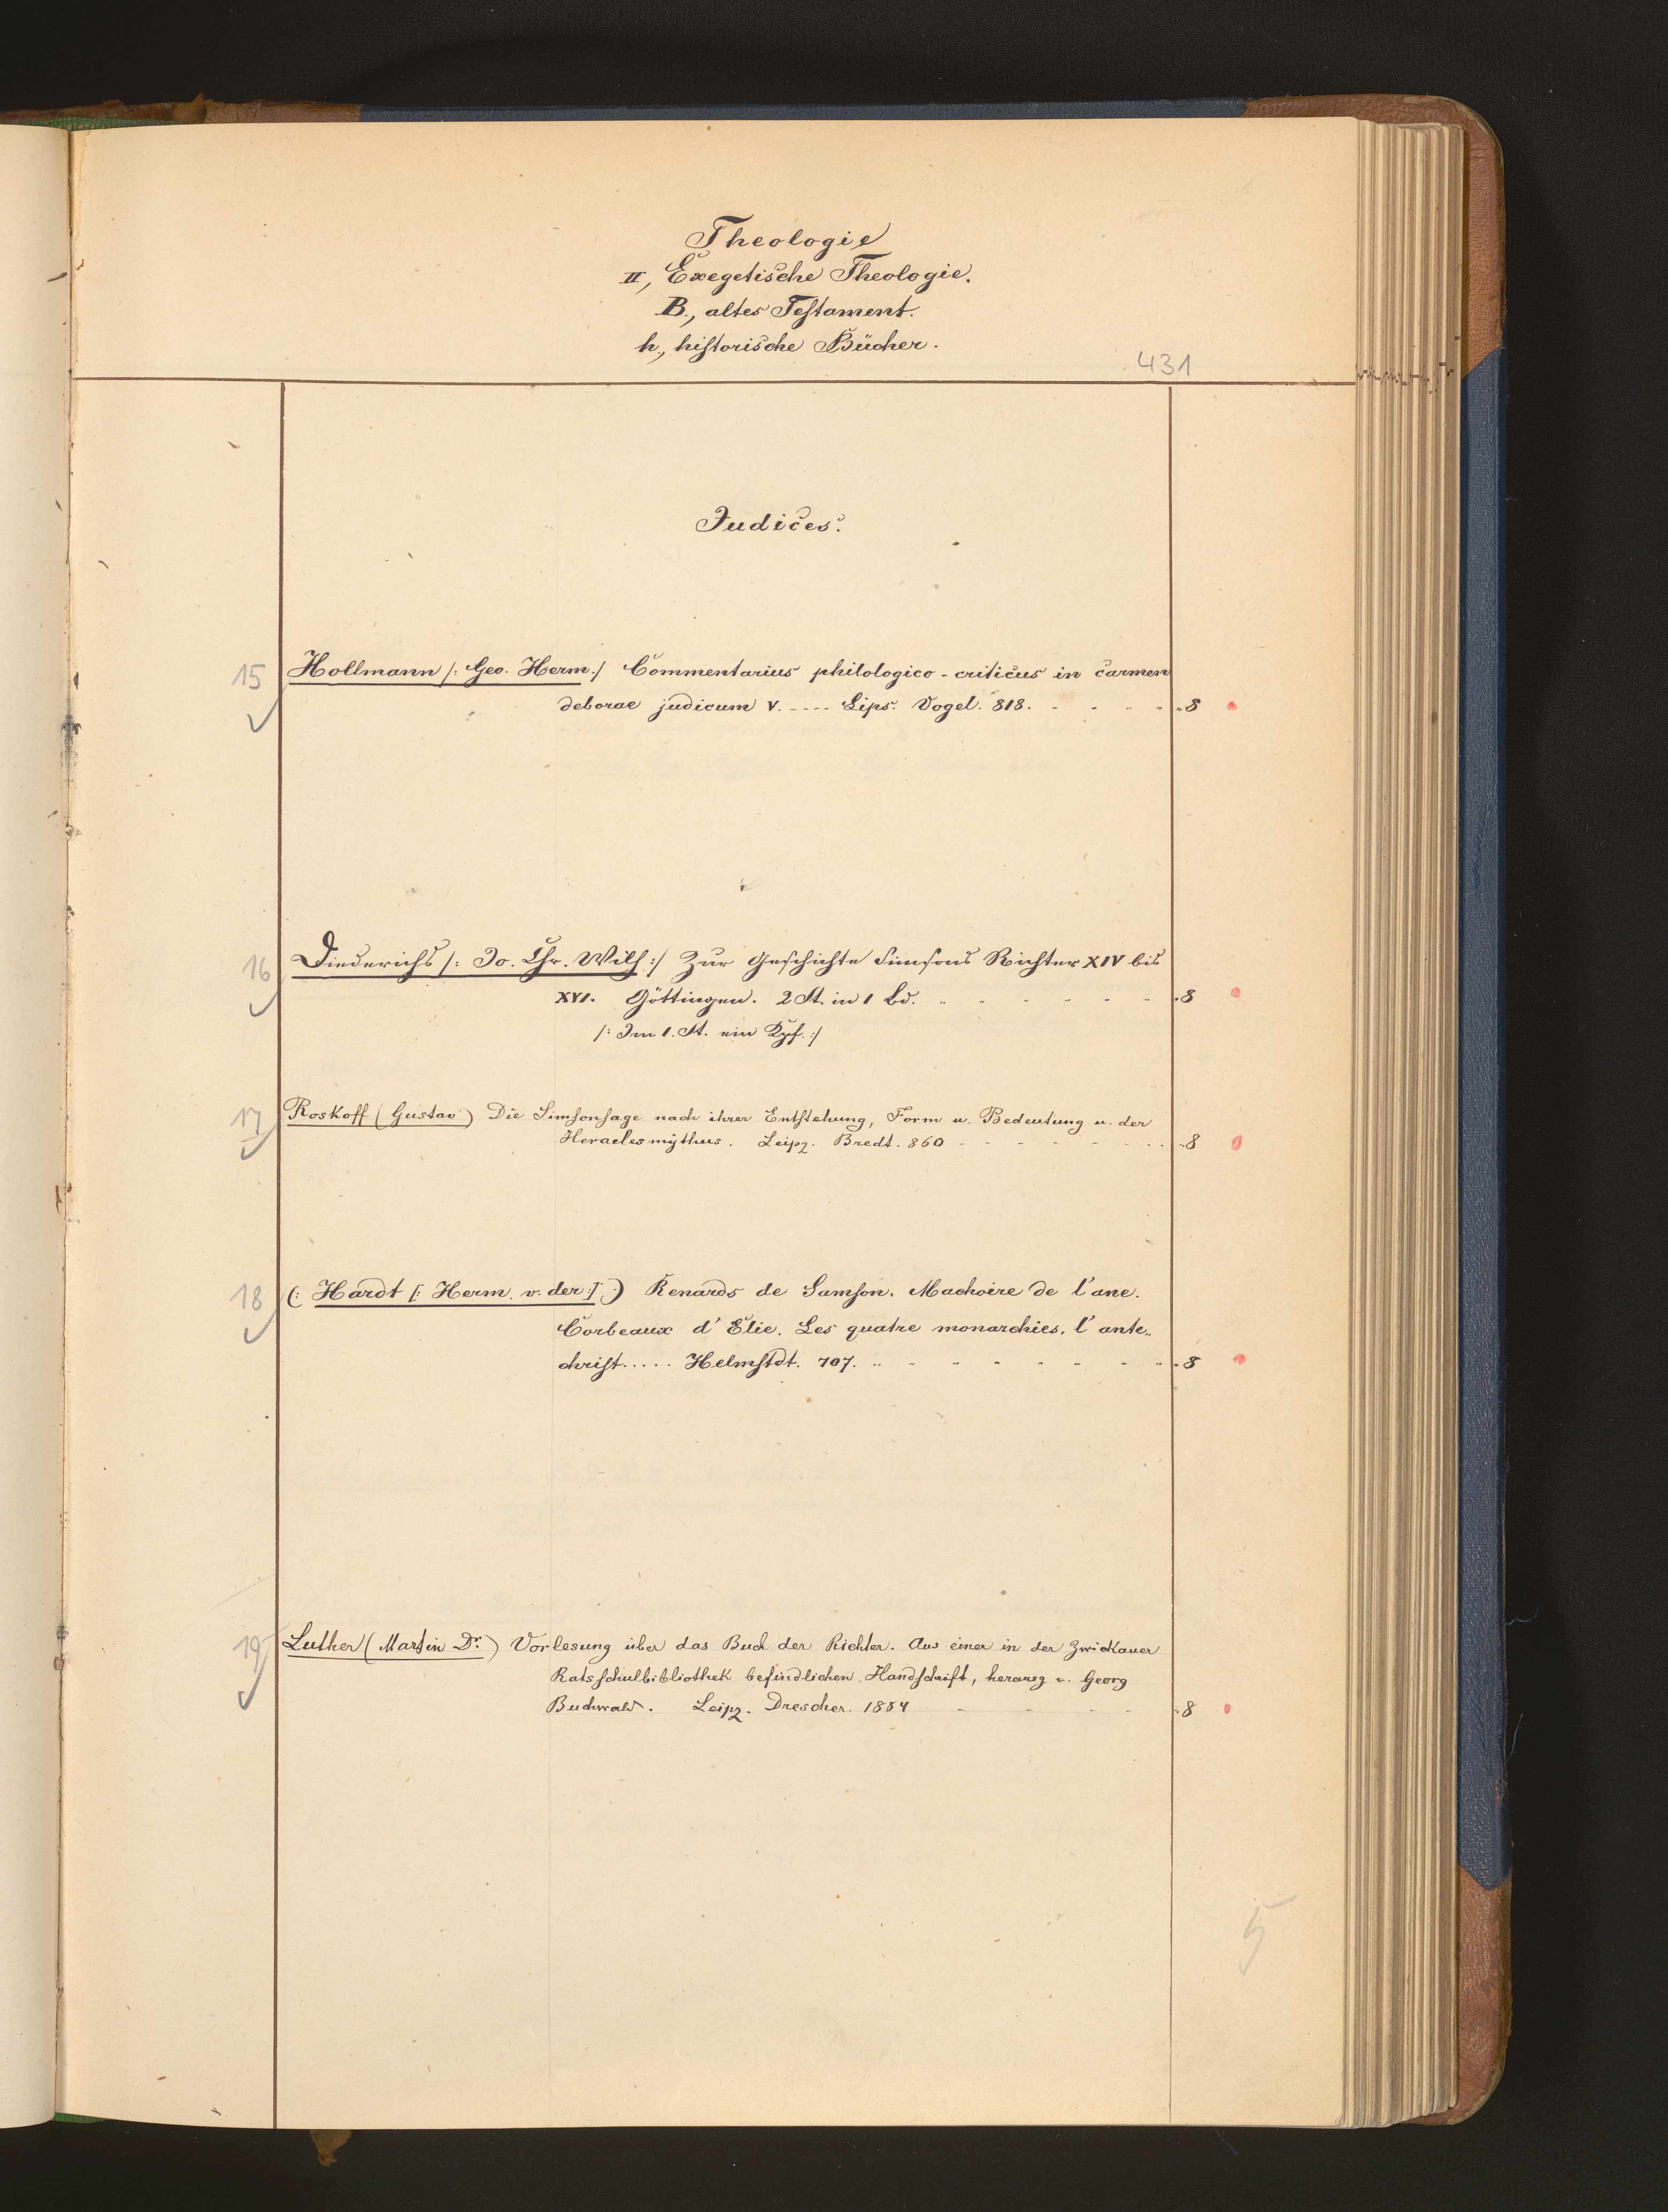 Theologie
II, Exegetische Theologie.
B., altes Testament.
h., historische Bücher.
431
Judices.
15 Hollmann /: Geo. Herm :/ Commentarius philologico-criticus in carmen
deborae judicum V. ---- Lips. Vogel. 818. 8
16 Diederichs /: Jo. Chr. Wilh :/ Zur Geschichte Simsons Richter XIV bis
XVI. Göttingen. 2 St. in 1 Bd. 8
/: Im 1. St. ein Kpf. :/
17 Roskoff (Gustav) Die Simsonsage nach ihrer Entstehung, Form u. Bedeutung u. der
Heraclesmythus. Leipz. Bredt. 860 8
18 (: Hardt [: Herm. v. der :] :) Renards de Samson. Machoire de l'ane.
Corbeaux d' Elie. Les quatre monarchies, l' ante„
christ..... Helmstdt. 707. 8
19 Luther (Martin Dr.) Vorlesung über das Buch der Richter. Aus einer in der Zwickauer
Ratsschulbibliothek befindlichen Handschrift, herausg v. Georg
Buchwald. Leipz. Drescher. 1884 8
5